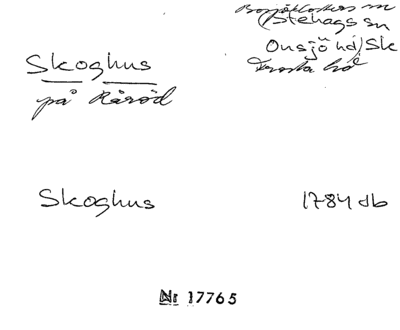 Bosjöklosters sn
(Stehags sn
Onsjö hd) Sk
Frosta hd
Skoghus
på Råröd
Skoghus 1784 db
Nr 17765